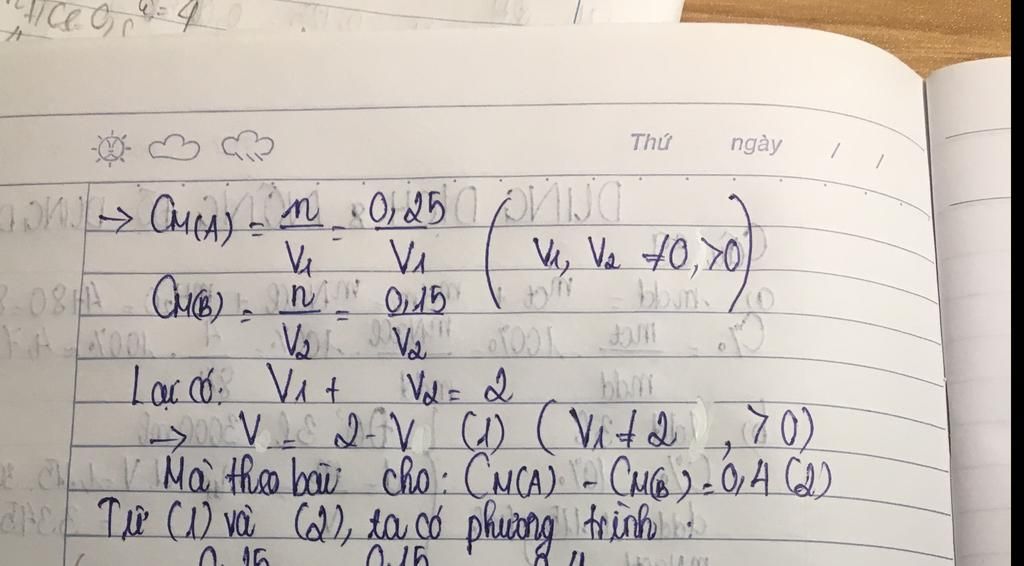 = 4
Thứ ngày / /
→ CM(A) = n/V1 = 0,25/V1 (V1, V2 ≠ 0, >0)
CM(B) = n/V2 = 0,15/V2
Lại có: V1 + V2 = 2
→ V = 2 - V (1) (V1 ≠ 2 , > 0)
Mà theo bài cho: CM(A) - CM(B) = 0,4 (2)
Từ (1) và (2), ta có phương trình: